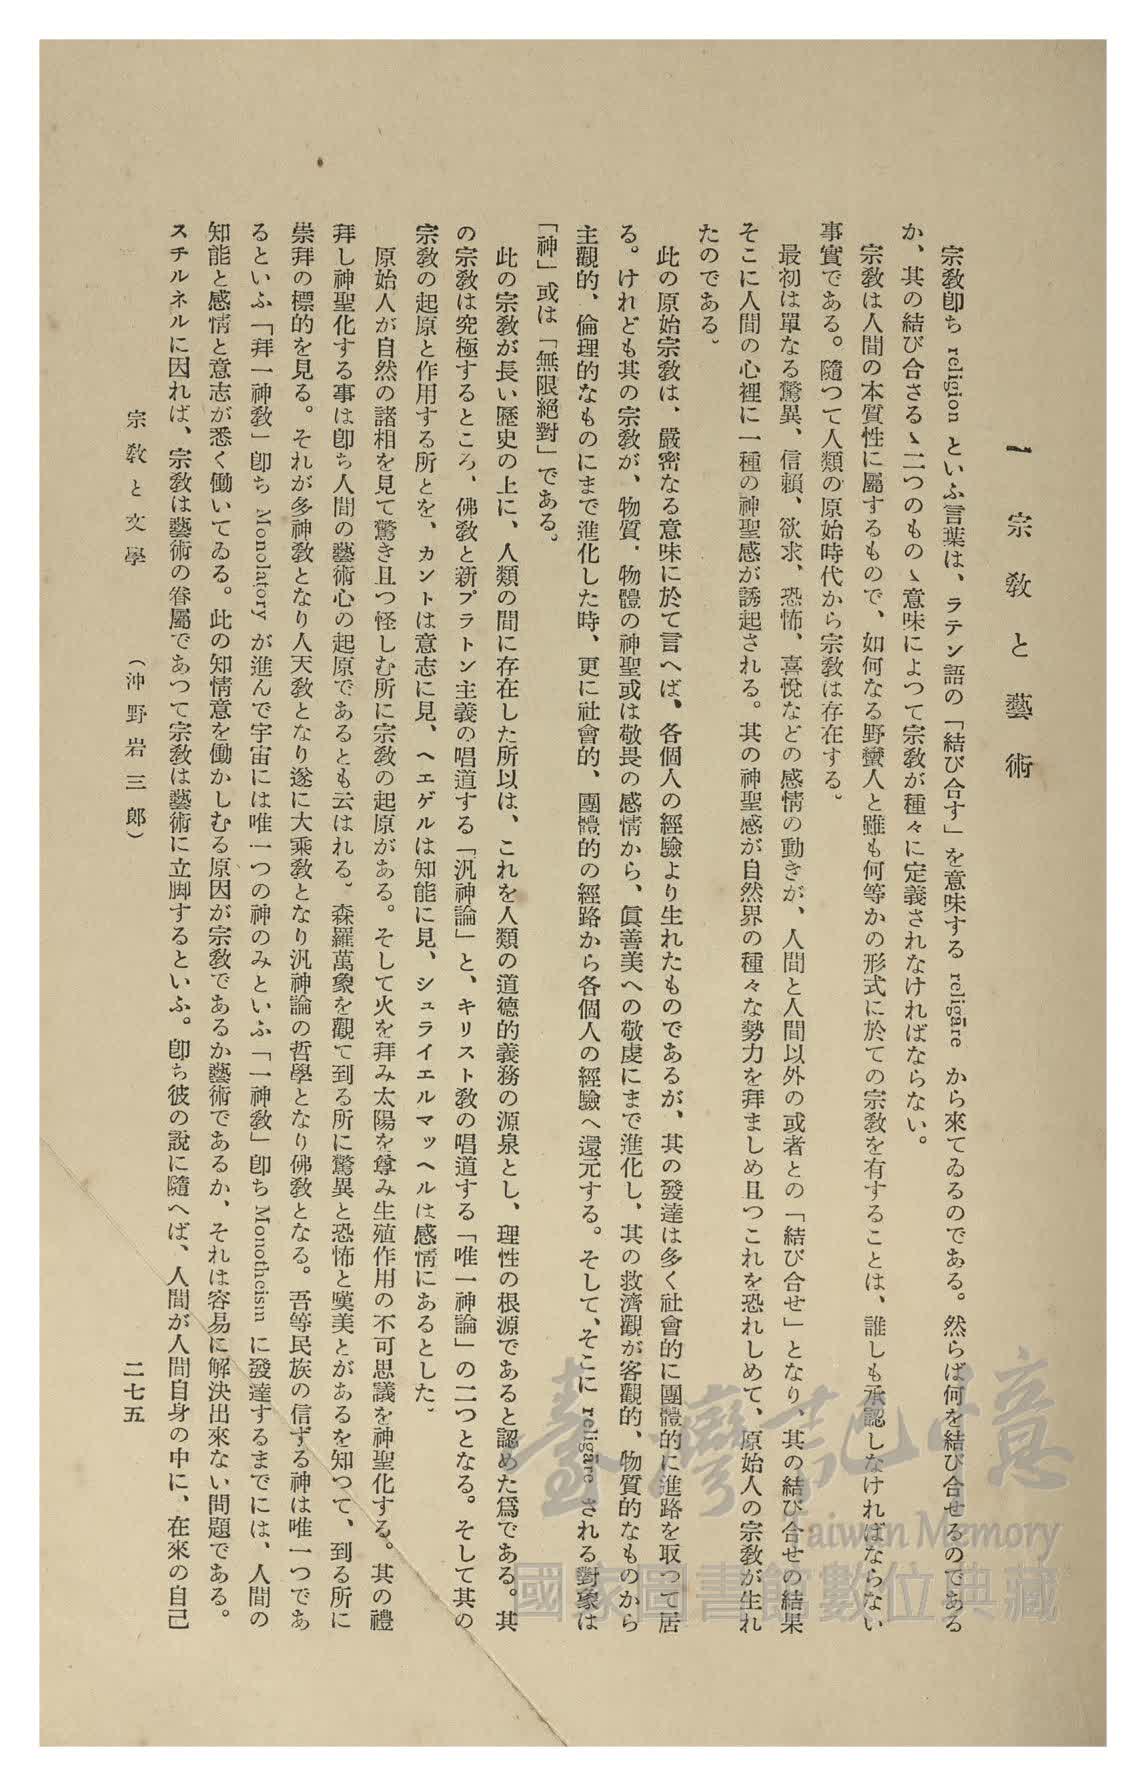 一　宗教と藝術
宗教卽ち religion といふ言葉は、ラテン語の「結び合す」を意味する religāre から來てゐるのである。然らば何を結び合せるのである
か、其の結び合さるゝ二つのものゝ意味によつて宗教が種々に定義されなければならない。
宗教は人間の本質性に屬するもので、如何なる野蠻人と雖も何等かの形式に於ての宗教を有することは、誰しも承認しなければならない
事實である。隨つて人類の原始時代から宗教は存在する。
最初は單なる驚異、信賴、欲求、恐怖、喜悅などの感情の動きが、人間と人間以外の或者との「結び合せ」となり、其の結び合せの結果
そこに人間の心裡に一種の神聖感が誘起される。其の神聖感が自然界の種々な勢力を拜ましめ且つこれを恐れしめて、原始人の宗教が生れ
たのである。
此の原始宗教は、嚴密なる意味に於て言へば、各個人の經驗より生れたものであるが、其の發達は多く社會的に團體的に進路を取つて居
る。けれども其の宗教が、物質・物體の神聖或は敬畏の感情から、眞善美への敬虔にまで進化し、其の救濟觀が客觀的、物質的なものから
主觀的、倫理的なものにまで進化した時、更に社會的、團體的の經路から各個人の經驗へ還元する。そして、そこに religāre される對象は
「神」或は「無限絕對」である。
此の宗教が長い歷史の上に、人類の間に存在した所以は、これを人類の道德的義務の源泉とし、理性の根源であると認めた爲である。其
の宗教は究極するところ、佛教と新プラトン主義の唱道する「汎神論」と、キリスト教の唱道する「唯一神論」の二つとなる。そして其の
宗教の起原と作用する所とを、カントは意志に見、ヘエゲルは知能に見、シュライエルマッヘルは感情にあるとした。
原始人が自然の諸相を見て驚き且つ怪しむ所に宗教の起原がある。そして火を拜み太陽を尊み生殖作用の不可思議を神聖化する。其の禮
拜し神聖化する事は卽ち人間の藝術心の起原であるとも云はれる。森羅萬象を觀て到る所に驚異と恐怖と嘆美とがあるを知つて、到る所に
崇拜の標的を見る。それが多神教となり人天教となり遂に大乘教となり汎神論の哲學となり佛教となる。吾等民族の信ずる神は唯一つであ
るといふ「拜一神教」卽ち Monolatory が進んで宇宙には唯一つの神のみといふ「一神教」卽ち Monotheism に發達するまでには、人間の
知能と感情と意志が悉く働いてゐる。此の知情意を働かしむる原因が宗教であるか藝術であるか、それは容易に解決出來ない問題である。
スチルネルに因れば、宗教は藝術の眷屬であつて宗教は藝術に立脚するといふ。卽ち彼の說に隨へば、人間が人間自身の中に、在來の自己
宗教と文學　（沖野岩三郞）　二七五
臺灣記憶
Taiwan Memory
國家圖書館數位典藏